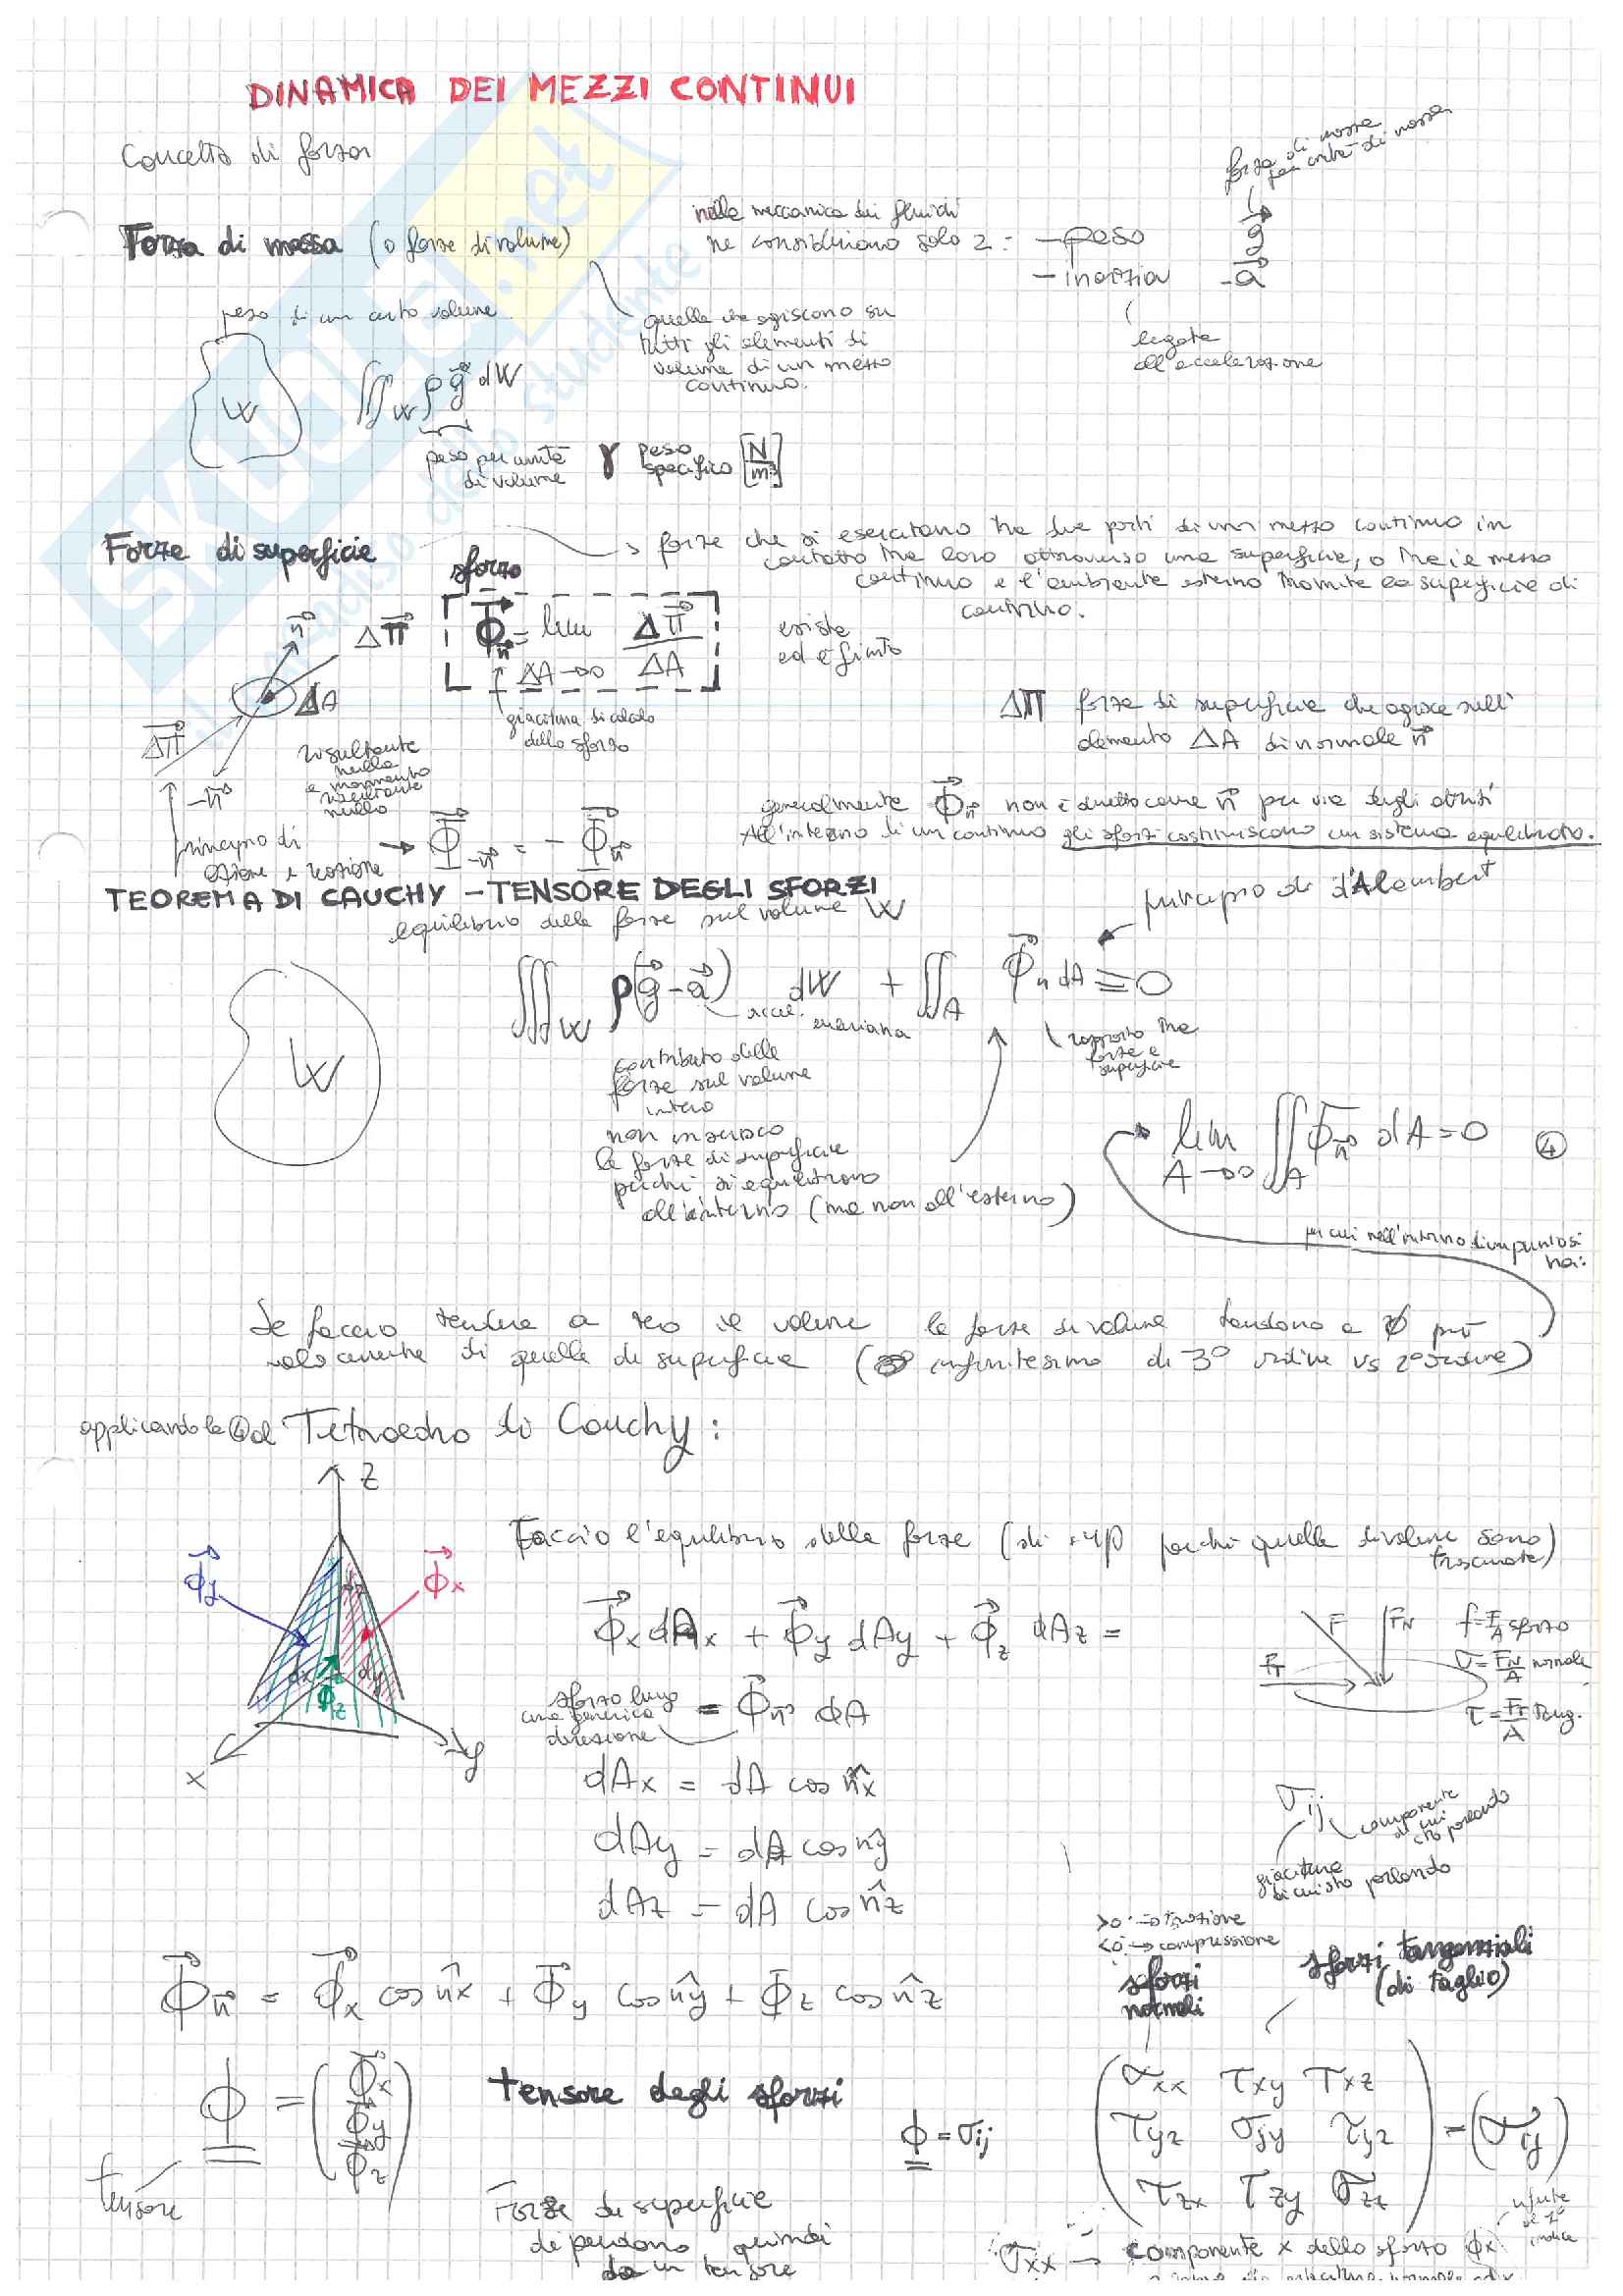 DINAMICA DEI MEZZI CONTINUI
Concetto di forza
forza di massa
per unità di massa
Forza di massa (o forze di volume)
nella meccanica dei fluidi
ne consideriamo solo 2: - peso g
- inerzia -a
legate
all'accelerazione
quelle che agiscono su
tutti gli elementi di
volume di un mezzo
continuo.
peso di un certo volume
W ∭W ρg dW
peso per unità
di volume
γ peso specifico [N/m³]
Forze di superficie
forze che si esercitano tra due parti di un mezzo continuo in
contatto tra loro attraverso una superficie, o tra il mezzo
continuo e l'ambiente esterno tramite la superficie di
contorno.
sforzo
Φn = lim ΔA→0 ΔΠ/ΔA
esiste
ed è finito
giacitura di calcolo
dello sforzo
n ΔΠ
ΔA
ΔΠ
-n
risultante
nulla
e momento
risultante
nullo
ΔΠ forza di superficie che agisce sull'
elemento ΔA di normale n
principio di
azione e reazione
→ Φ-n = - Φn
generalmente Φn non è diretto come n per via degli attriti
All'interno di un continuo gli sforzi costituiscono un sistema equilibrato.
TEOREMA DI CAUCHY - TENSORE DEGLI SFORZI
equilibrio delle forze sul volume W
principio di d'Alembert
W
∭W ρ(g-a) dW + ∬A Φn dA = 0
accel. euleriana
rapporto tra
forze e
superficie
contributo delle
forze sul volume
intero
non inserisco
le forze di superficie
perché si equilibrano
all'interno (ma non all'esterno)
lim A→0 ∬A Φn dA = 0 ④
per cui nell'intorno di un punto si
ha:
Se faccio tendere a zero il volume le forze di volume tendono a 0 più
velocemente di quelle di superficie (infinitesimo di 3° ordine vs 2° ordine)
applicando la ④ al Tetraedro di Cauchy:
z
Φy
Φx
dz
dx
dy
Φz
x
y
Faccio l'equilibrio delle forze (di sup perché quelle di volume sono
trascurate)
Φx dAx + Φy dAy + Φz dAz =
= Φn dA
sforzo lungo
una generica
direzione
F FN
FT
f = F/A sforzo
σ = FN/A normale
τ = FT/A tang.
dAx = dA cos nx
dAy = dA cos ny
dAz = dA cos nz
σij
componente
di cui
sto parlando
giacitura
di cui sto parlando
>0 → trazione
<0 → compressione
sforzi
normali
sforzi tangenziali
(di taglio)
Φn = Φx cos nx + Φy cos ny + Φz cos nz
Φ = (Φx Φy Φz)
tensore
tensore degli sforzi
Φ = σij
σxx τxy τxz
τyz σyy τyz
τzx τzy σzz
= (σij)
Forze di superficie
dipendono quindi
da un tensore
σxx → componente x dello sforzo Φx
riferite
al 1°
indice